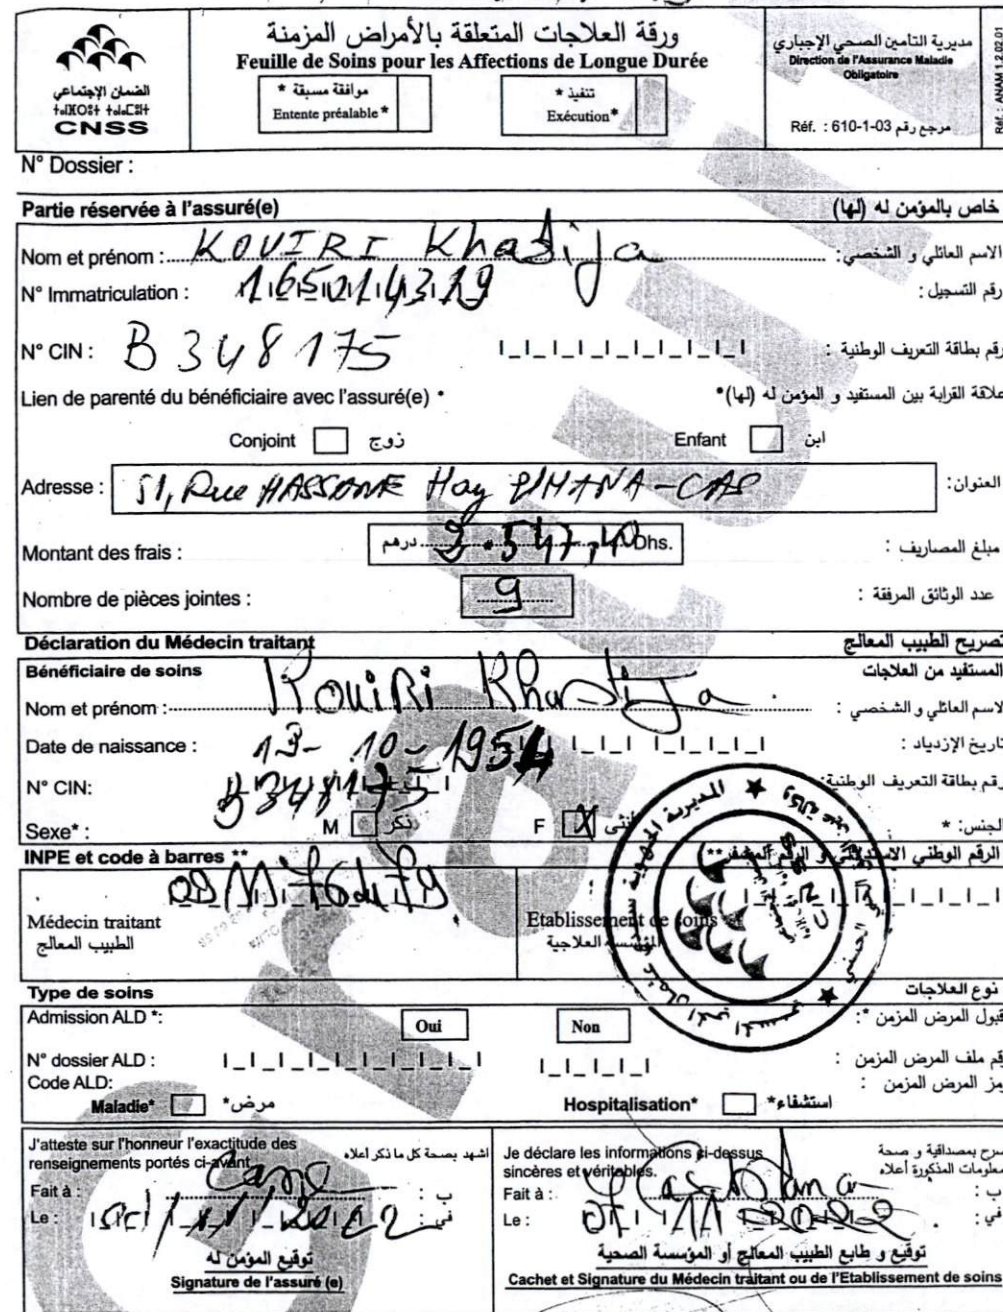 ورقة العلاجات المتعلقة بالأمراض المزمنة
Feuille de Soins pour les Affections de Longue Durée
الضمان الإجتماعي
ⵜⴰⵏⴰⵎⵓⵏⵜ
CNSS
موافقة مسبقة *
Entente préalable *
تنفيذ *
Exécution*
مديرية التأمين الصحي الإجباري
Direction de l'Assurance Maladie
Obligatoire
Réf. : 610-1-03 مرجع رقم
Réf. : ANAM 1.2.02.01
N° Dossier :
Partie réservée à l'assuré(e) خاص بالمؤمن له (لها)
Nom et prénom : KOUIRI Khadija الاسم العائلي و الشخصي:
N° Immatriculation : 165014319 رقم التسجيل :
N° CIN : B 348175 رقم بطاقة التعريف الوطنية :
Lien de parenté du bénéficiaire avec l'assuré(e) * علاقة القرابة بين المستفيد و المؤمن له (لها)*
Conjoint زوج Enfant ابن
Adresse : 51, Rue HASSONE Hay العنوان:
Montant des frais : درهم 2.547,40 Dhs. مبلغ المصاريف :
Nombre de pièces jointes : 9 عدد الوثائق المرفقة :
Déclaration du Médecin traitant تصريح الطبيب المعالج
Bénéficiaire de soins المستفيد من العلاجات
Nom et prénom : Kouiri Khadija الاسم العائلي و الشخصي :
Date de naissance : 13-10-1954 تاريخ الإزدياد :
N° CIN: B348175 رقم بطاقة التعريف الوطنية:
Sexe* : M ذكر F X أنثى الجنس: *
INPE et code à barres ** الرقم الوطني
Médecin traitant
الطبيب المعالج
Etablissement de soins
المؤسسة العلاجية
Type de soins نوع العلاجات
Admission ALD *: Oui Non قبول المرض المزمن *:
N° dossier ALD : رقم ملف المرض المزمن :
Code ALD: رمز المرض المزمن :
Maladie* مرض* Hospitalisation* استشفاء*
J'atteste sur l'honneur l'exactitude des
renseignements portés ci-avant
اشهد بصحة كل ما ذكر أعلاه
Fait à : Casa ب :
Le : 2022 في :
توقيع المؤمن له
Signature de l'assuré (e)
Je déclare les informations ci-dessus
sincères et véritables.
صرح بمصداقية و صحة
المعلومات المذكورة أعلاه
Fait à : Casablanca ب :
Le : 11 2022 في :
توقيع و طابع الطبيب المعالج أو المؤسسة الصحية
Cachet et Signature du Médecin traitant ou de l'Etablissement de soins